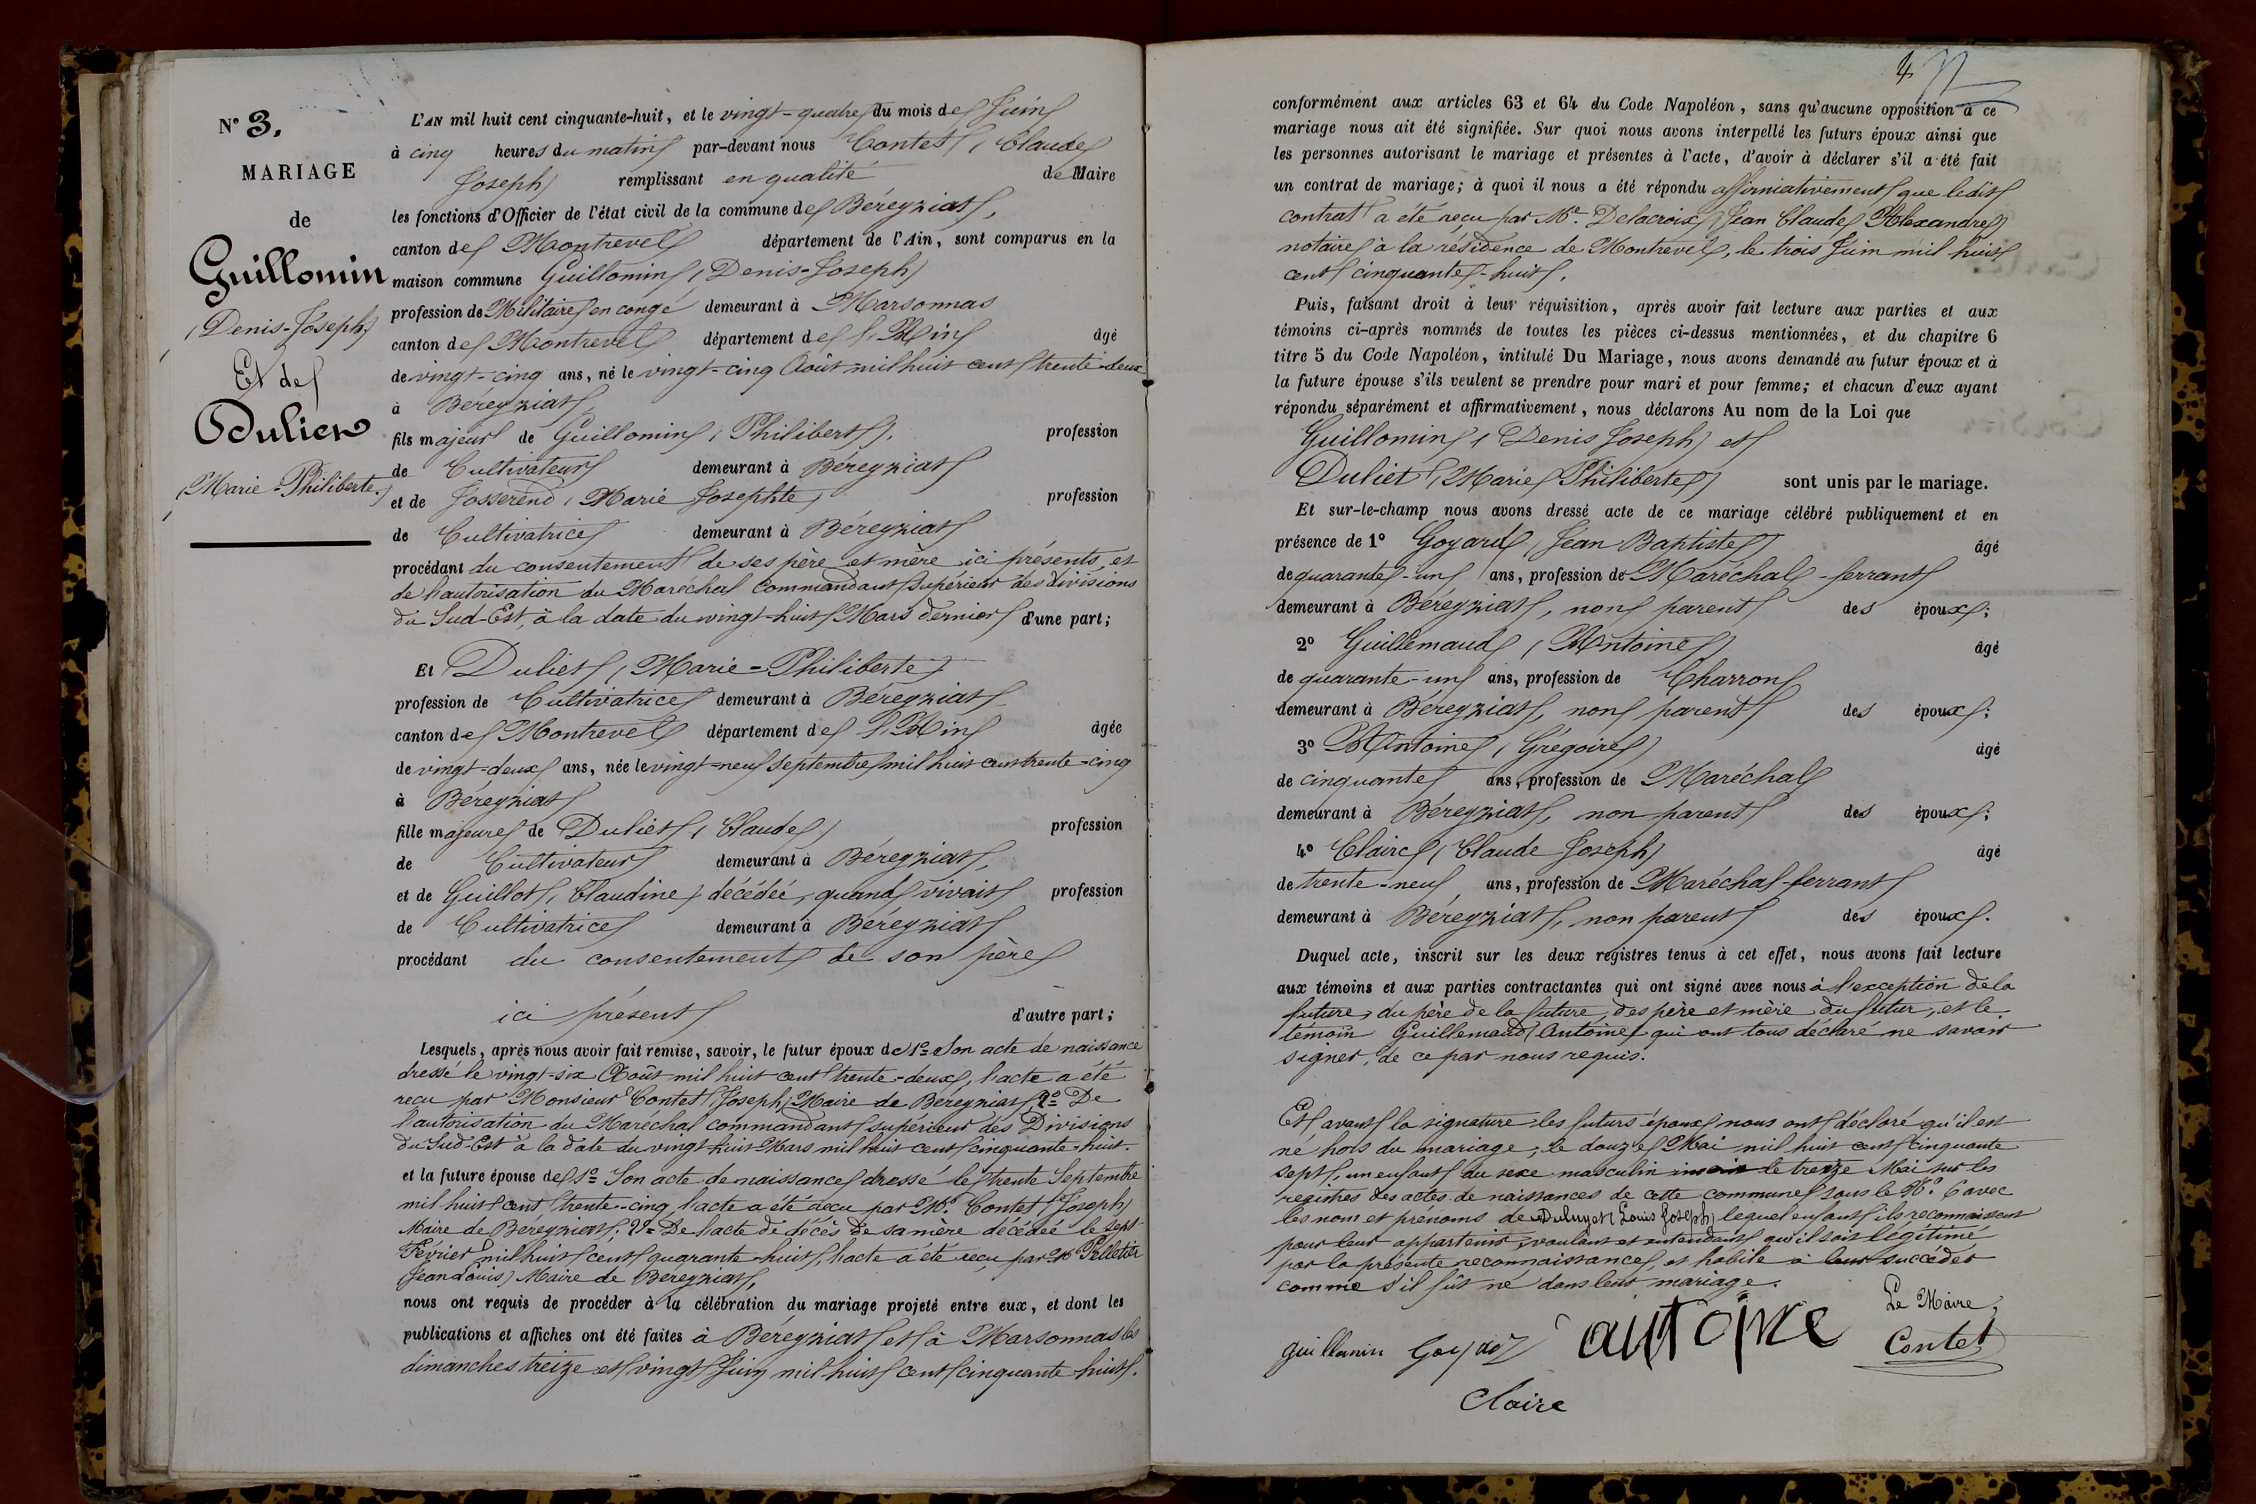 N° 3.
MARIAGE
de
Guillomin
(Denis-Joseph)
Et de
Dulier
(Marie-Philiberte.)
L'AN mil huit cent cinquante-huit, et le vingt-quatre du mois de Juin
à cinq heures du matin par-devant nous Contet (Claude
Joseph) remplissant en qualité de Maire
les fonctions d'Officier de l'état civil de la commune de Béreyziat,
canton de Montrevel département de l'Ain, sont comparus en la
maison commune Guillomin (Denis-Joseph)
profession de Militaire en congé demeurant à Marsonnas
canton de Montrevel département de l'Ain âgé
de vingt-cinq ans, né le vingt-cinq Août mil huit cent trente-deux
à Béreyziat
fils majeur de Guillomin (Philibert). profession
de Cultivateur demeurant à Béreyziat
et de Josserend (Marie Josephte) profession
de Cultivatrice demeurant à Béreyziat
procédant du consentement de ses père et mère ici présents, et
de l'autorisation du Maréchal Commandant Supérieur des divisions
du Sud-Est, à la date du vingt-huit Mars dernier d'une part;
Et Duliet (Marie-Philiberte)
profession de Cultivatrice demeurant à Béreyziat
canton de Montrevel département de l'Ain âgée
de vingt-deux ans, née le vingt-neuf Septembre mil huit cent trente-cinq
à Béreyziat
fille majeure de Duliet (Claude) profession
de Cultivateur demeurant à Béreyziat,
et de Guillot, Claudine, décédée, quand vivait profession
de Cultivatrice demeurant à Béreyziat
procédant du consentement de son père
ici présent d'autre part;
Lesquels, après nous avoir fait remise, savoir, le futur époux de 1° Son acte de naissance
dressé le vingt-six Août mil huit cent trente-deux, l'acte a été
reçu par Monsieur Contet (Joseph) Maire de Béreyziat, 2° De
l'autorisation du Maréchal commandant supérieur des Divisions
du Sud-Est à la date du vingt-huit Mars mil huit cent cinquante-huit.
et la future épouse de 1° Son acte de naissance dressé le trente Septembre
mil huit cent trente-cinq, l'acte a été reçu par Mr. Contet (Joseph)
Maire de Béreyziat; 2° De l'acte de décès de sa mère décédée le sept
Février mil huit cent quarante-huit, l'acte a été reçu par Mr Pelletier
(Jean Louis) Maire de Béreyziat,
nous ont requis de procéder à la célébration du mariage projeté entre eux, et dont les
publications et affiches ont été faites à Béreyziat et à Marsonnas les
dimanches treize et vingt Juin mil huit cent cinquante-huit.
4
conformément aux articles 63 et 64 du Code Napoléon, sans qu'aucune opposition à ce
mariage nous ait été signifiée. Sur quoi nous avons interpellé les futurs époux ainsi que
les personnes autorisant le mariage et présentes à l'acte, d'avoir à déclarer s'il a été fait
un contrat de mariage; à quoi il nous a été répondu affirmativement que ledit
contrat a été reçu par Me. Delacroix (Jean Claude Alexandre)
notaire à la résidence de Montrevel, le trois Juin mil huit
cent cinquante-huit.
Puis, faisant droit à leur réquisition, après avoir fait lecture aux parties et aux
témoins ci-après nommés de toutes les pièces ci-dessus mentionnées, et du chapitre 6
titre 5 du Code Napoléon, intitulé Du Mariage, nous avons demandé au futur époux et à
la future épouse s'ils veulent se prendre pour mari et pour femme; et chacun d'eux ayant
répondu séparément et affirmativement, nous déclarons Au nom de la Loi que
Guillomin (Denis Joseph) et
Duliet (Marie Philiberte) sont unis par le mariage.
Et sur-le-champ nous avons dressé acte de ce mariage célébré publiquement et en
présence de 1° Goyard (Jean Baptiste) âgé
de quarante-un ans, profession de Maréchal-ferrant
demeurant à Béreyziat, non parent des époux;
2° Guillemaud (Antoine) âgé
de quarante-un ans, profession de Charron
demeurant à Béreyziat, non parent des époux;
3° Antoine (Grégoire) âgé
de cinquante ans, profession de Maréchal
demeurant à Béreyziat, non parent des époux;
4° Claire (Claude Joseph) âgé
de trente-neuf ans, profession de Maréchal-ferrant
demeurant à Béreyziat, non parent des époux.
Duquel acte, inscrit sur les deux registres tenus à cet effet, nous avons fait lecture
aux témoins et aux parties contractantes qui ont signé avec nous à l'exception de la
future, du père de la future, des père et mère du futur, et le
témoin Guillemaud (Antoine) qui ont tous déclaré ne savoir
signer, de ce par nous requis.
Et avant la signature les futurs époux nous ont déclaré qu'il est
né hors du mariage, le douze Mai mil huit cent cinquante
sept, un enfant du sexe masculin inscrit le treize Mai sur les
registres des actes de naissances de cette commune sous le N°. 6 avec
les nom et prénoms de Duluyet (Louis Joseph) lequel enfant ils reconnaissent
pour leur appartenir, voulant et entendant qu'il soit légitimé
par la présente reconnaissance, et habile à leur succéder
comme s'il fût né dans leur mariage.
Le Maire,
guillomin Goyard antoine Contet
Claire